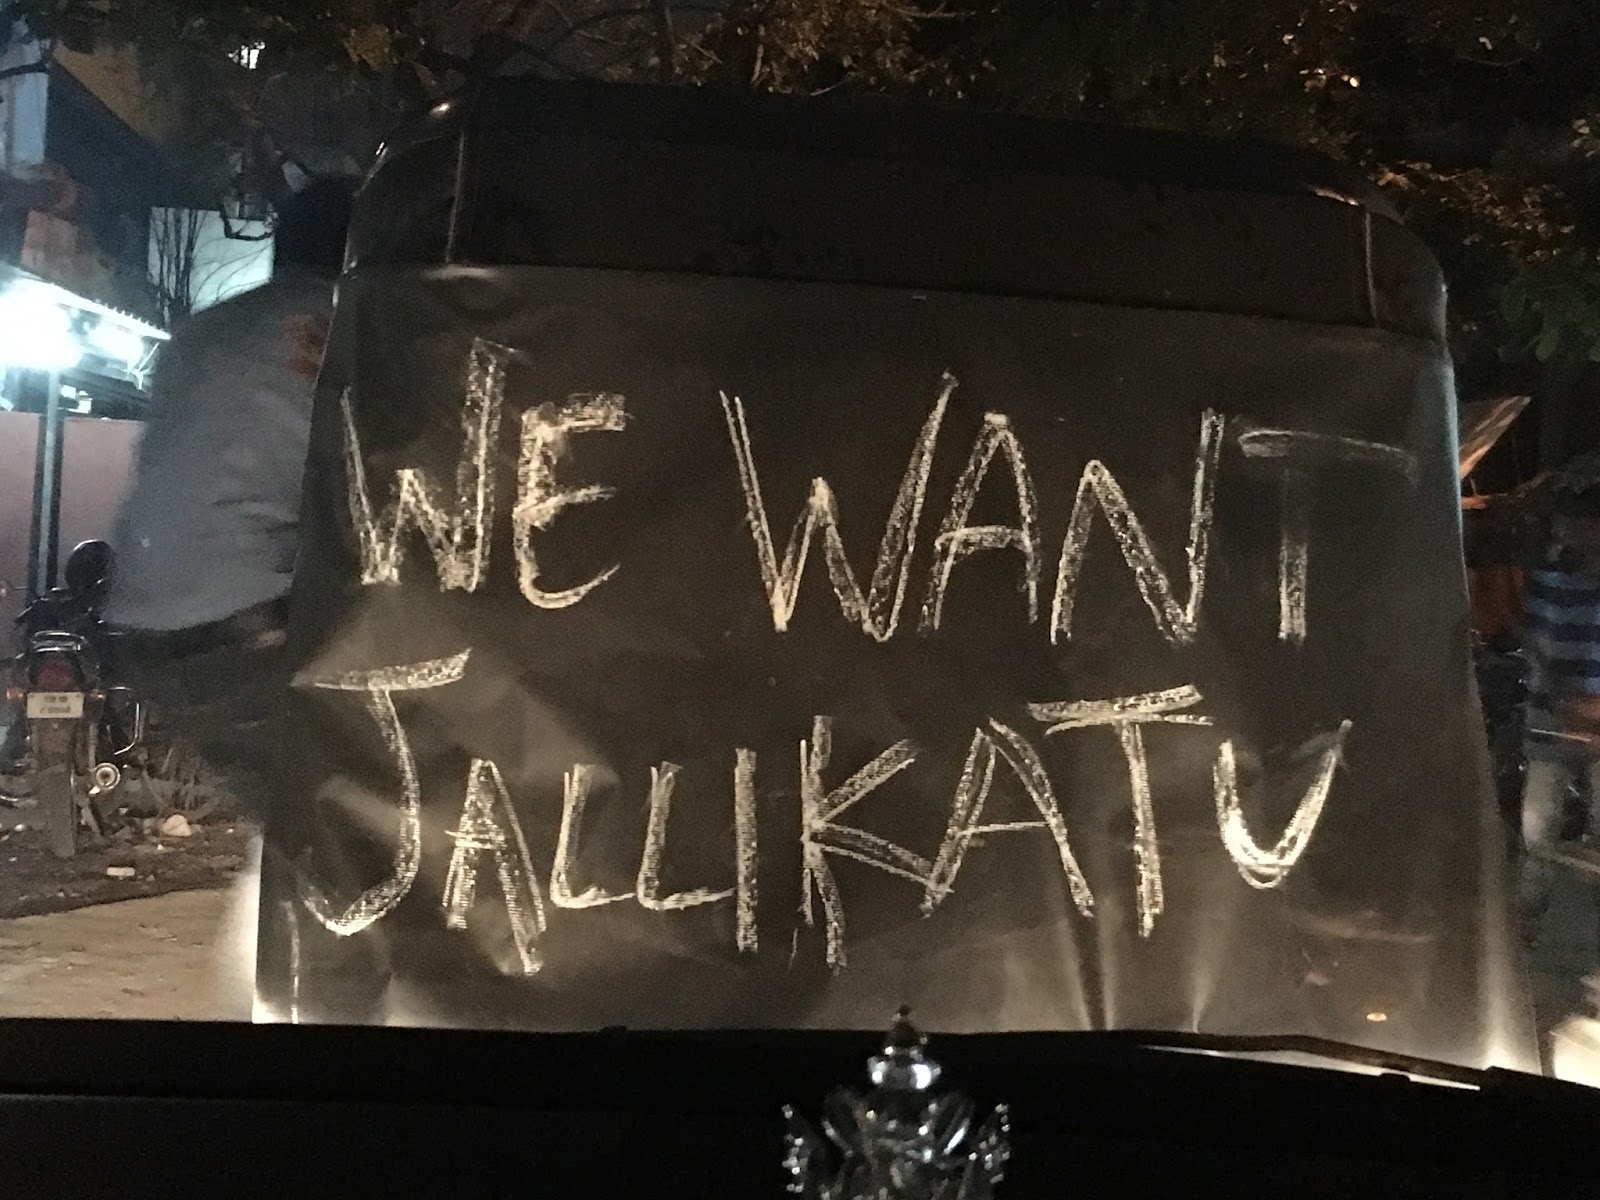 WE WANT
JALLIKATU